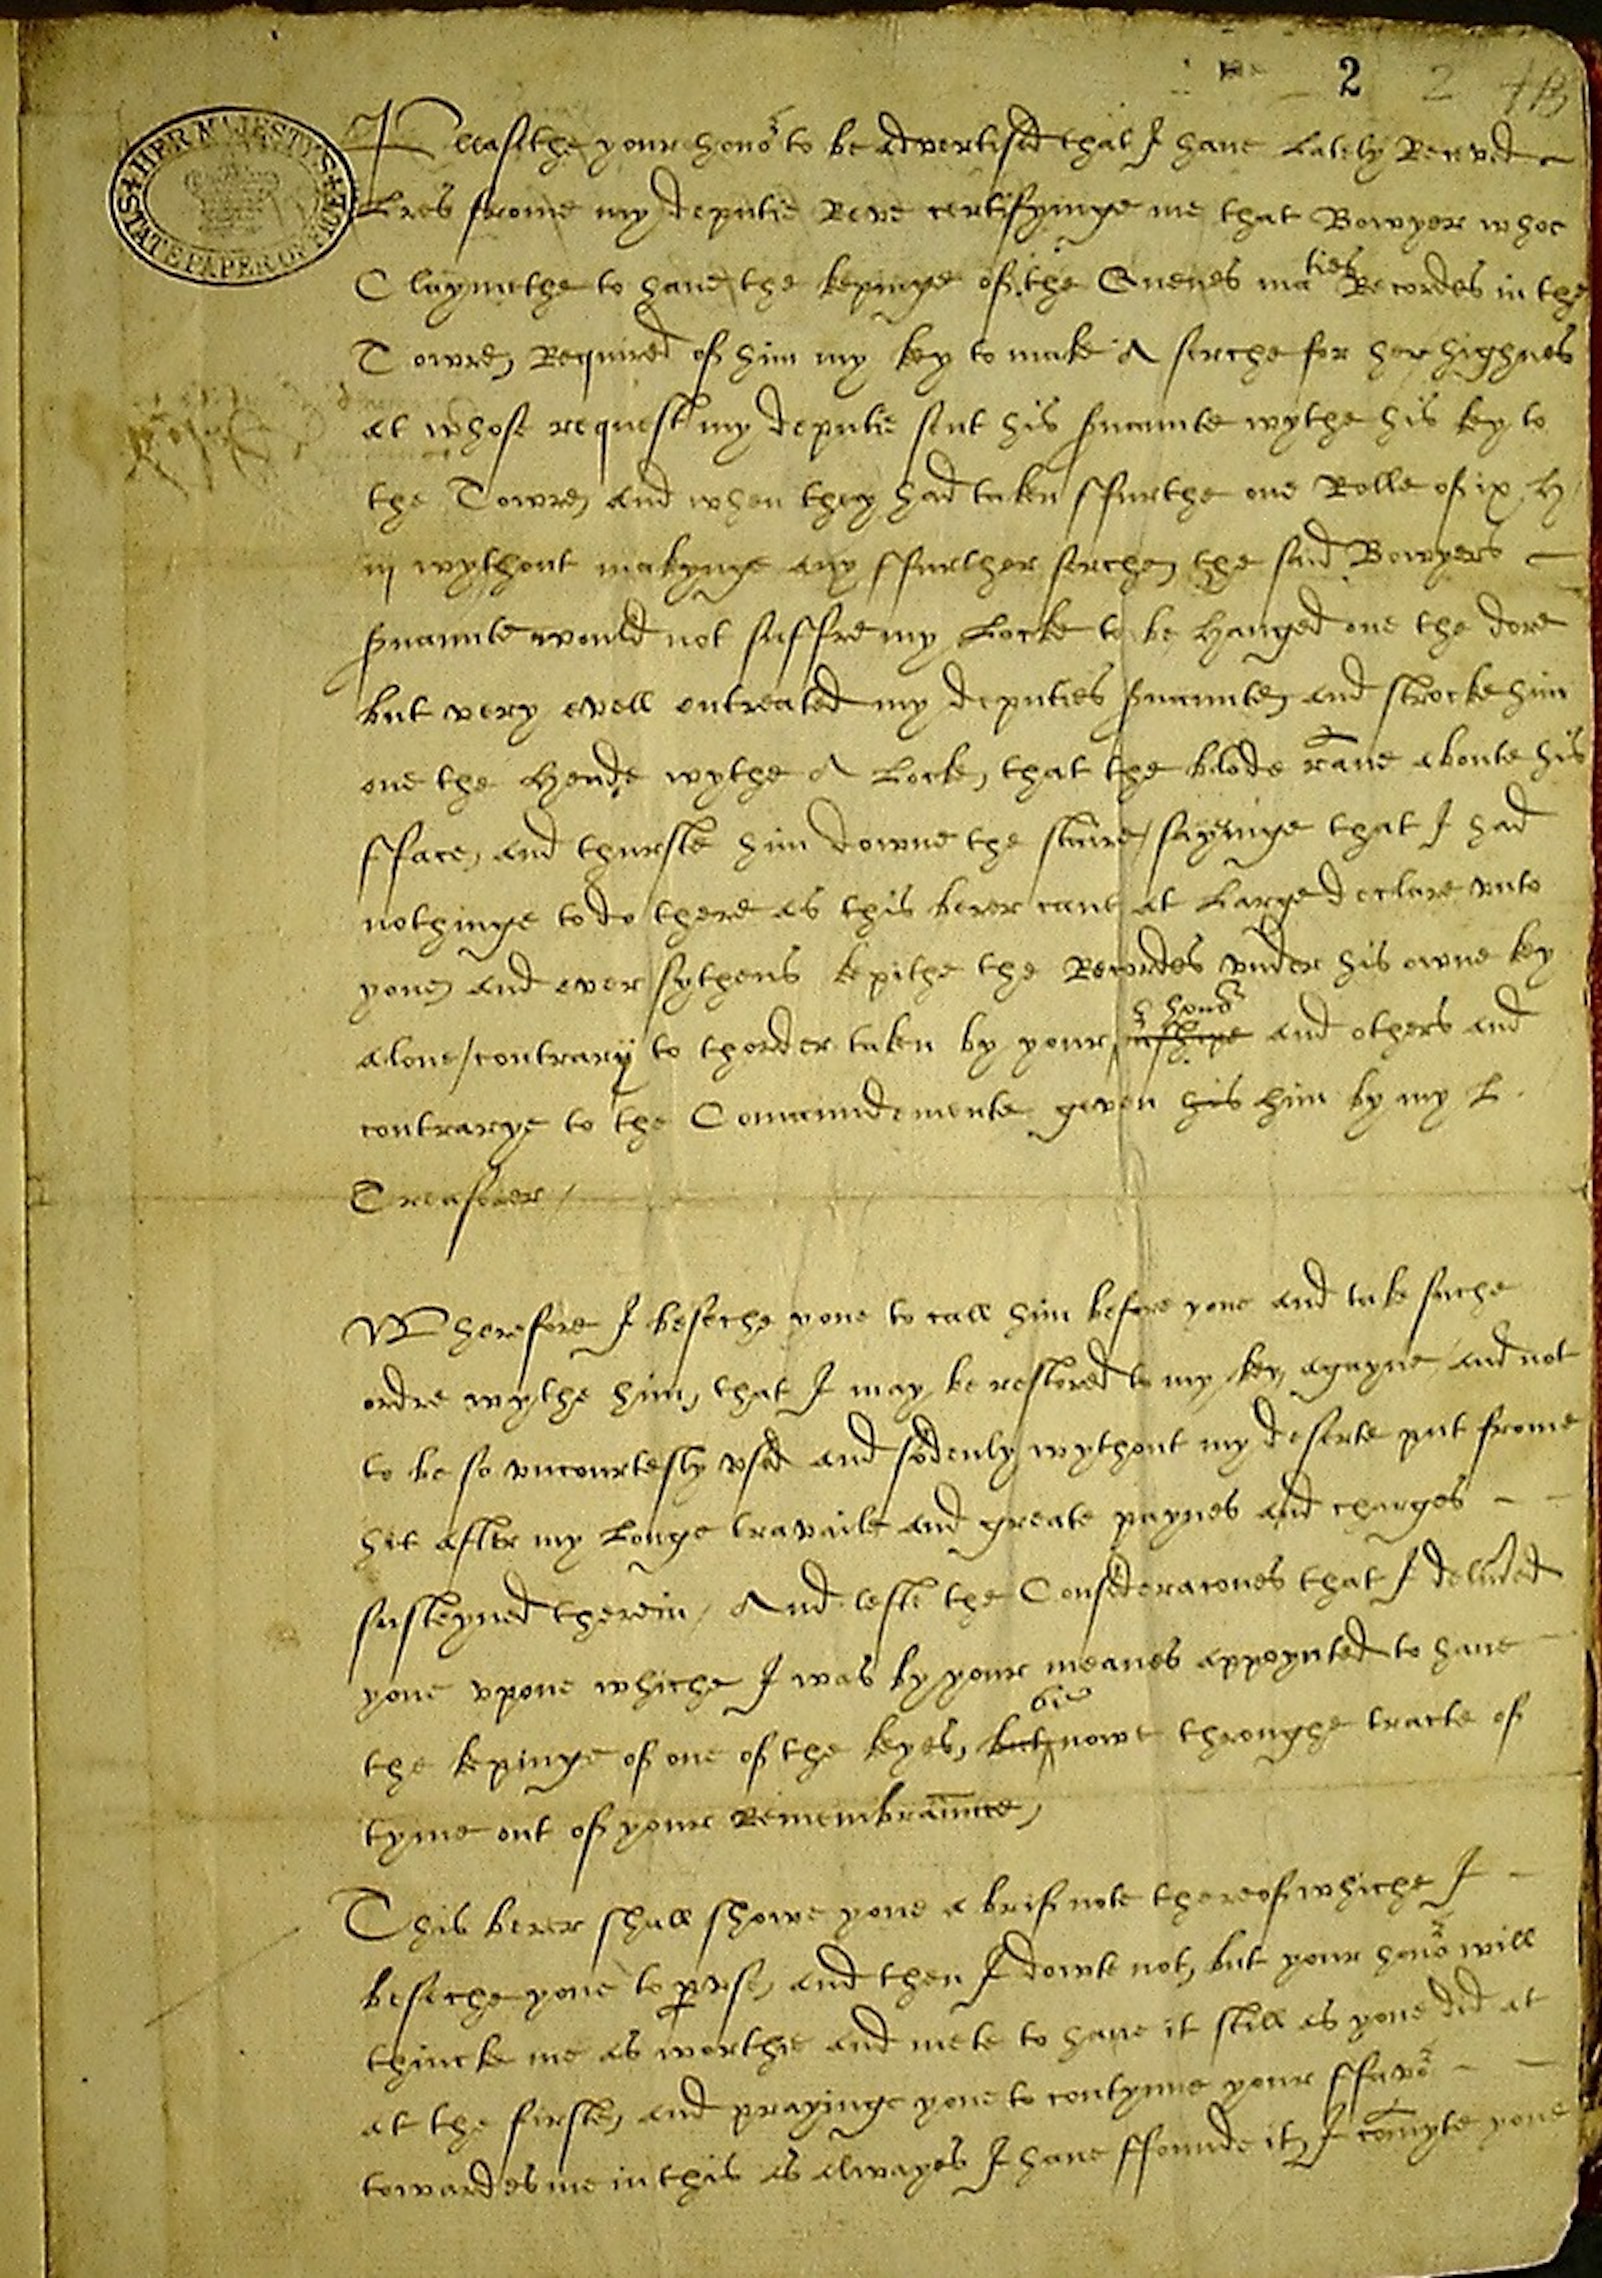 2 2
HER MAJESTY'S STATE PAPER OFFICE
Pleasithe your honor to be advertised that I have Lately Receved
Lres frome my deputie Reve certifyinge me that Bowyer whoe
Claymithe to have the kepinge of the Quenes maties Recordes in the
Towre, Required of him my key to make A serche for her highnes
at whose request my deputie sent his servaunte wythe his key to
the Towre, and when they had taken ffurthe one Rolle of ix H
iij wythout makynge any ffurther serche, the said Bowyers
servaunte would not suffre my Locke to be Hanged one the dore
but very evell entreated my deputies servaunte, and strocke him
one the Heade wythe A Locke, that the blode rane aboute his
fface, and thurste him downe the staire / sayeinge that I had
nothinge to do there as this berer cane at Large declare unto
youe, and ever sythens kepithe the Recordes under his owne key
alone / contrary to thorder taken by your honor and others and
contrarye to the Comaundemente geven his him by my L.
Treasorer /
Wherefore I beseche youe to call him before youe and take suche
ordre wythe him, that I may be restored to my key, agayne / and not
to be so uncourtesly used and sodenly wythout my deserte put frome
hit after my Longe travaile and greate paynes and charges
susteyned therein / And leste the Consideracones that I delivred
youe upone whiche I was by your meanes appoynted to have
the kepinge of one of the keyes, but be nowe throughe tracte of
tyme out of your Remembraunce,
This berer shall showe youe a brif note thereof whiche I
beseche youe to peruse, and then I dowte not, but your honor will
thincke me as worthie and mete to have it still as youe did at
at the firste, and prayinge youe to contynue your ffavor
towardes me in this as alwayes I have ffounde it, I comyte youe